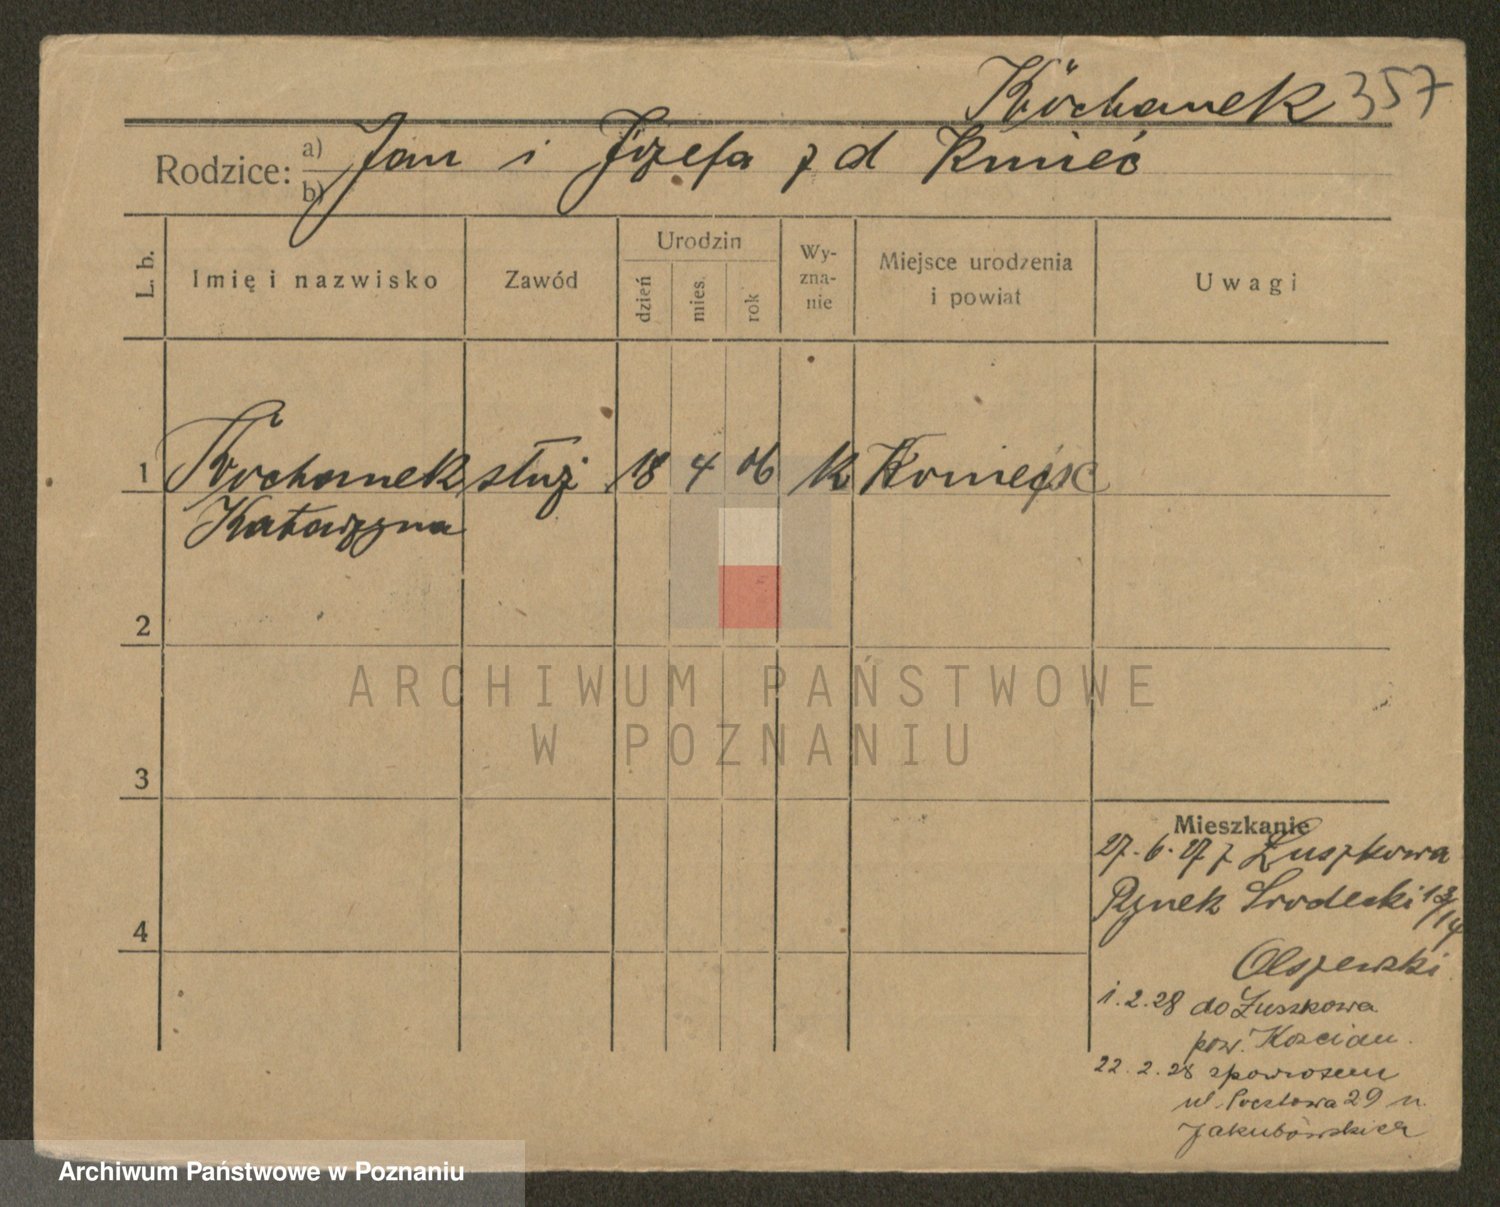 Kochanek 357
Rodzice: a) Jan i Józefa z d Kmieć
b)
L. b.
Imię i nazwisko
Zawód
Urodzin
dzień
mies.
rok
Wy-
zna-
nie
Miejsce urodzenia
i powiat
Uwagi
1 Kochanek służ 18 4 06 k
Katarzyna
2
3
4
Mieszkanie
27.6.27 z Łuszkowa
Rynek Srodecki 13/14
Olszewski
1.2.28 do Łuszkowa
pow. Koscian.
22.2.28 zpowrotem
ul. Pocztowa 29 u
Jakubowskich
ARCHIWUM PAŃSTWOWE
W POZNANIU
Archiwum Państwowe w Poznaniu